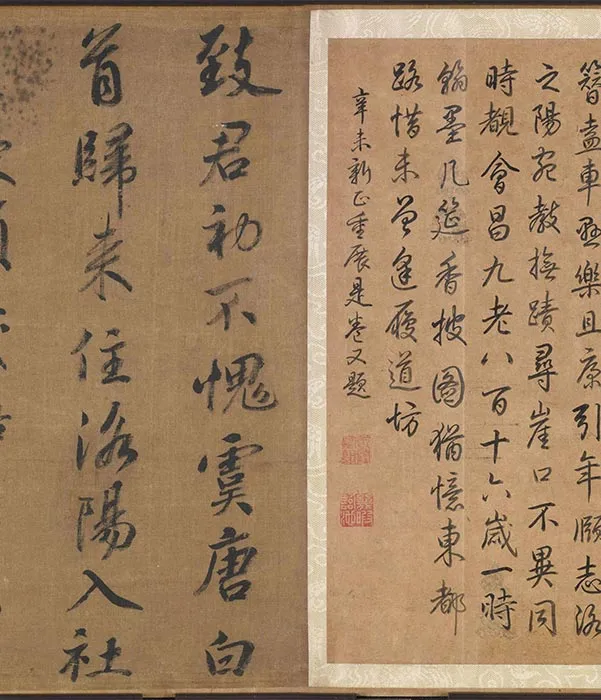 簪盍車樂且康引年頤志洛
之陽宛教撫蹟尋崖口不異同
時覩會昌九老八百十六歲一時
翰墨几筵香披圖猶憶東都
路惜未曾逢履道坊
辛未新正重展是卷又題
致君初不愧虞唐白
首歸来住洛陽入社